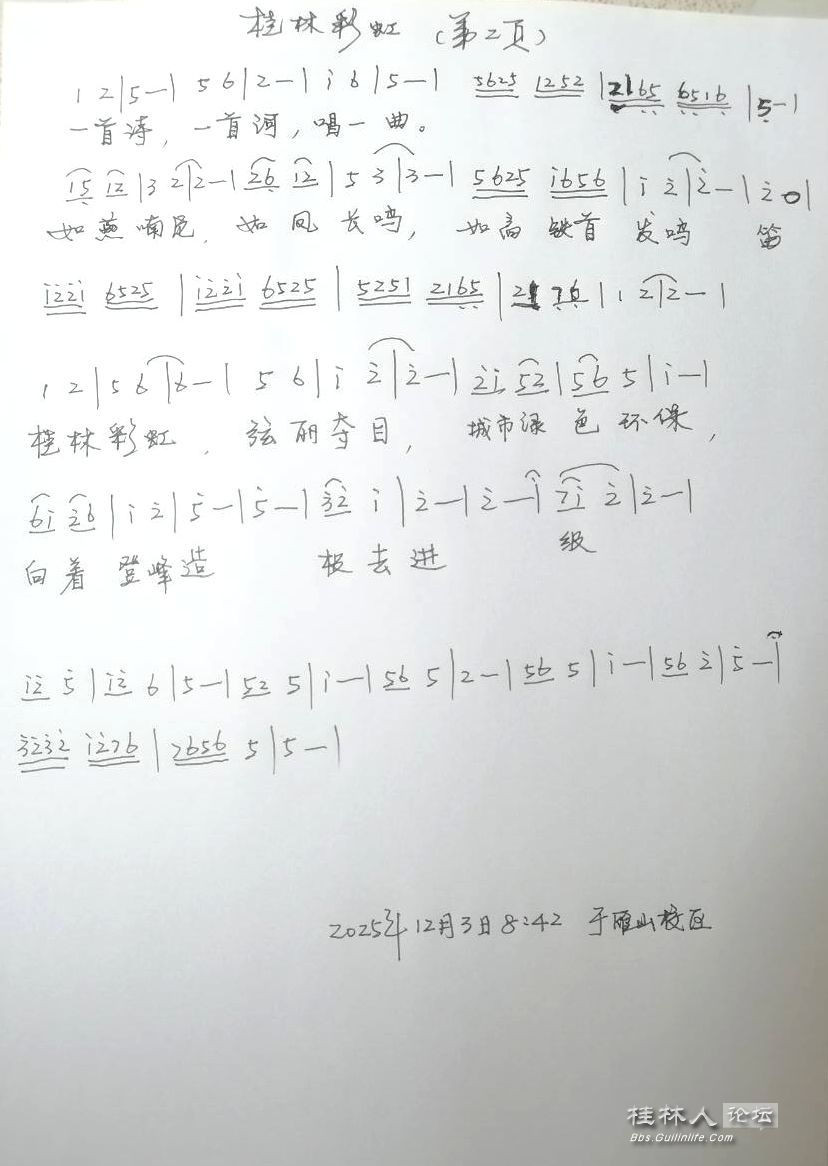 桂林彩虹（第二页）
1 2|5 —| 5 6|2 —| i 6|5 —| 5625 1252 |2165 6516 |5 —|
一首诗，一首词，唱一曲。
15 12|3 2|2 —|26 12|5 3|3 —| 5625 i656 |i 2|2 —|2 0|
如燕喃呢，如凤长鸣，如高铁首发鸣笛
i22i 6525 |i22i 6525 |5251 2165 | 1 2|2 —|
1 2|5 6|6 —| 5 6|i 2|2 —| 2i 52|56 5|i —|
桂林彩虹，炫丽夺目，城市绿色环保，
6i 26|i 2|5 —|5 —| 32 i|2 —|2 —| 2i 2|2 —|
向着登峰造极去进级
i2 5|i2 6|5 —|52 5|i —|56 5|2 —|56 5|i —|56 2|5 —|
3232 i276 |7656 5|5 —|
2025年12月3日8:42 于雁山校区
桂林人论坛
Bbs.Guilinlife.Com